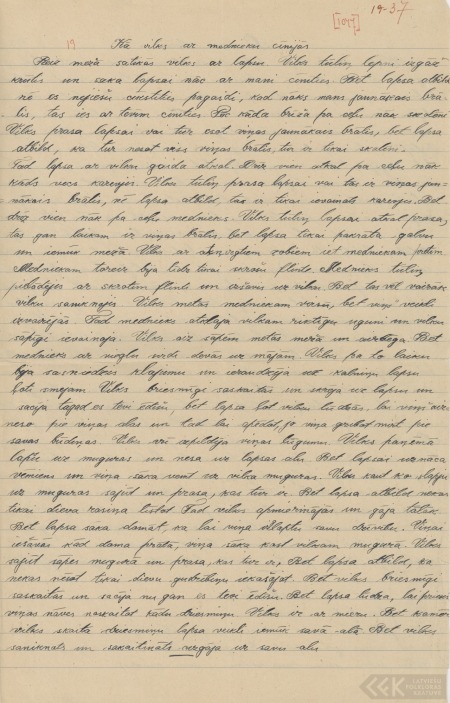 [1044] 19-37
19 Kā vilks ar mednieku cīnijās
Reiz mežā satikās vilks ar lapsu. Vilks tūlin lepni izgāž
krūtis un saka lapsai nāc ar mani cīnīties Bet lapsa atbild
nē es neiešu cīnīties pagaidi, kad nāks mans jaunākais brā-
lis, tas ies ar tevim cīnīties Pēc kāda brīža pa ceļu nāk skolēni
Vilks prasa lapsai vai tur esot viņas jaunākais brālis, bet lapsa
atbild, ka tur nesot viņas brālis, tie ir tikai skoleni.
Tad lapsa ar vilku gaida atkal. Pār vien atkal pa ceļu nāk
kāds vecs kareivis. Vilks tūlin prasa lapsai vai tas ir viņas jau-
nākais brālis, nē lapsa atbild, tas ir tikai vecs kareivis. Bet
drīz vien nāk pa ceļu mednieks. Vilks tūlin lapsai atkal prasa,
tas gan laikam ir viņas brālis, bet lapsa tikai pakrata galvu
un iemūk mežā. Vilks ar zobiem iet medniekam pretim
Medniekam toreiz bija līdz tikai skrošu flinte Mednieks tūlin
pielādēja ar skrotīm flinti un izšāva uz vilku Bet tas vēl vairāk
vilku saniknoja. Vilks metās medniekam virsū, bet viņš veikli
izvairījās Tad mednieks atdeva vilkam riktīgu uguni un vilku
sāpīgi ievainoja. Vilks aiz sāpēm metās mežā un aizbēga. Bet
mednieks ar vieglu sirdi devās uz mājām. Vilks pa to laiku
bija sasniedzis klajumu un ieraudzīja uz kalniņa lapsu
ļoti smejam Vilks briesmīgi saskaitās un skrēja uz lapsu un
sacīja tagad es tevi ēdīšu, bet lapsa lūdz vilku lai viņš aiz-
neso pie viņas alas un tad lai apēdot, jo viņa gribot mirt pie
savas būdiņas Vilks arī izpildīja viņas lūgumu. Vilks paņēma
lapsu uz muguras un nesa uz lapsas alu Bet lapsai uznāca
un viņa sāka vemt uz vilka muguras. Vilks kaut ko slapju
uz muguras sajūt un prasa, kas tur ir. Bet lapsa atbild nekas
tikai dieva rasiņa līstot Tad vilks apmierinājās un gāja tālāk.
Bet lapsa sāka domāt, ka lai viņa izglābtu savu dzīvību. Viņai
iešāvās kād doma prātā, viņa sāka kost vilkam mugurā. Vilks
sajūt sāpes mugurā un prasa, kas tur ir, Bet lapsa atbild, ka
nekas nesot tikai dievu iekasījot. Bet vilks briesmīgi
saskaitās un sacīja nu gan es tevi ēdīšu. Bet lapsa lūdza, lai pirms
viņas nāves noskaitot kādu dziesmiņu. Vilks ir ar mieru. Bet kamēr
vilks skaita dziesmiņu lapsa veikli iemūk savā alā Bet vilks
saniknots un sakaitināts aizgāja uz savu alu.
LATVIEŠU
FOLKLORAS
KRĀTUVE